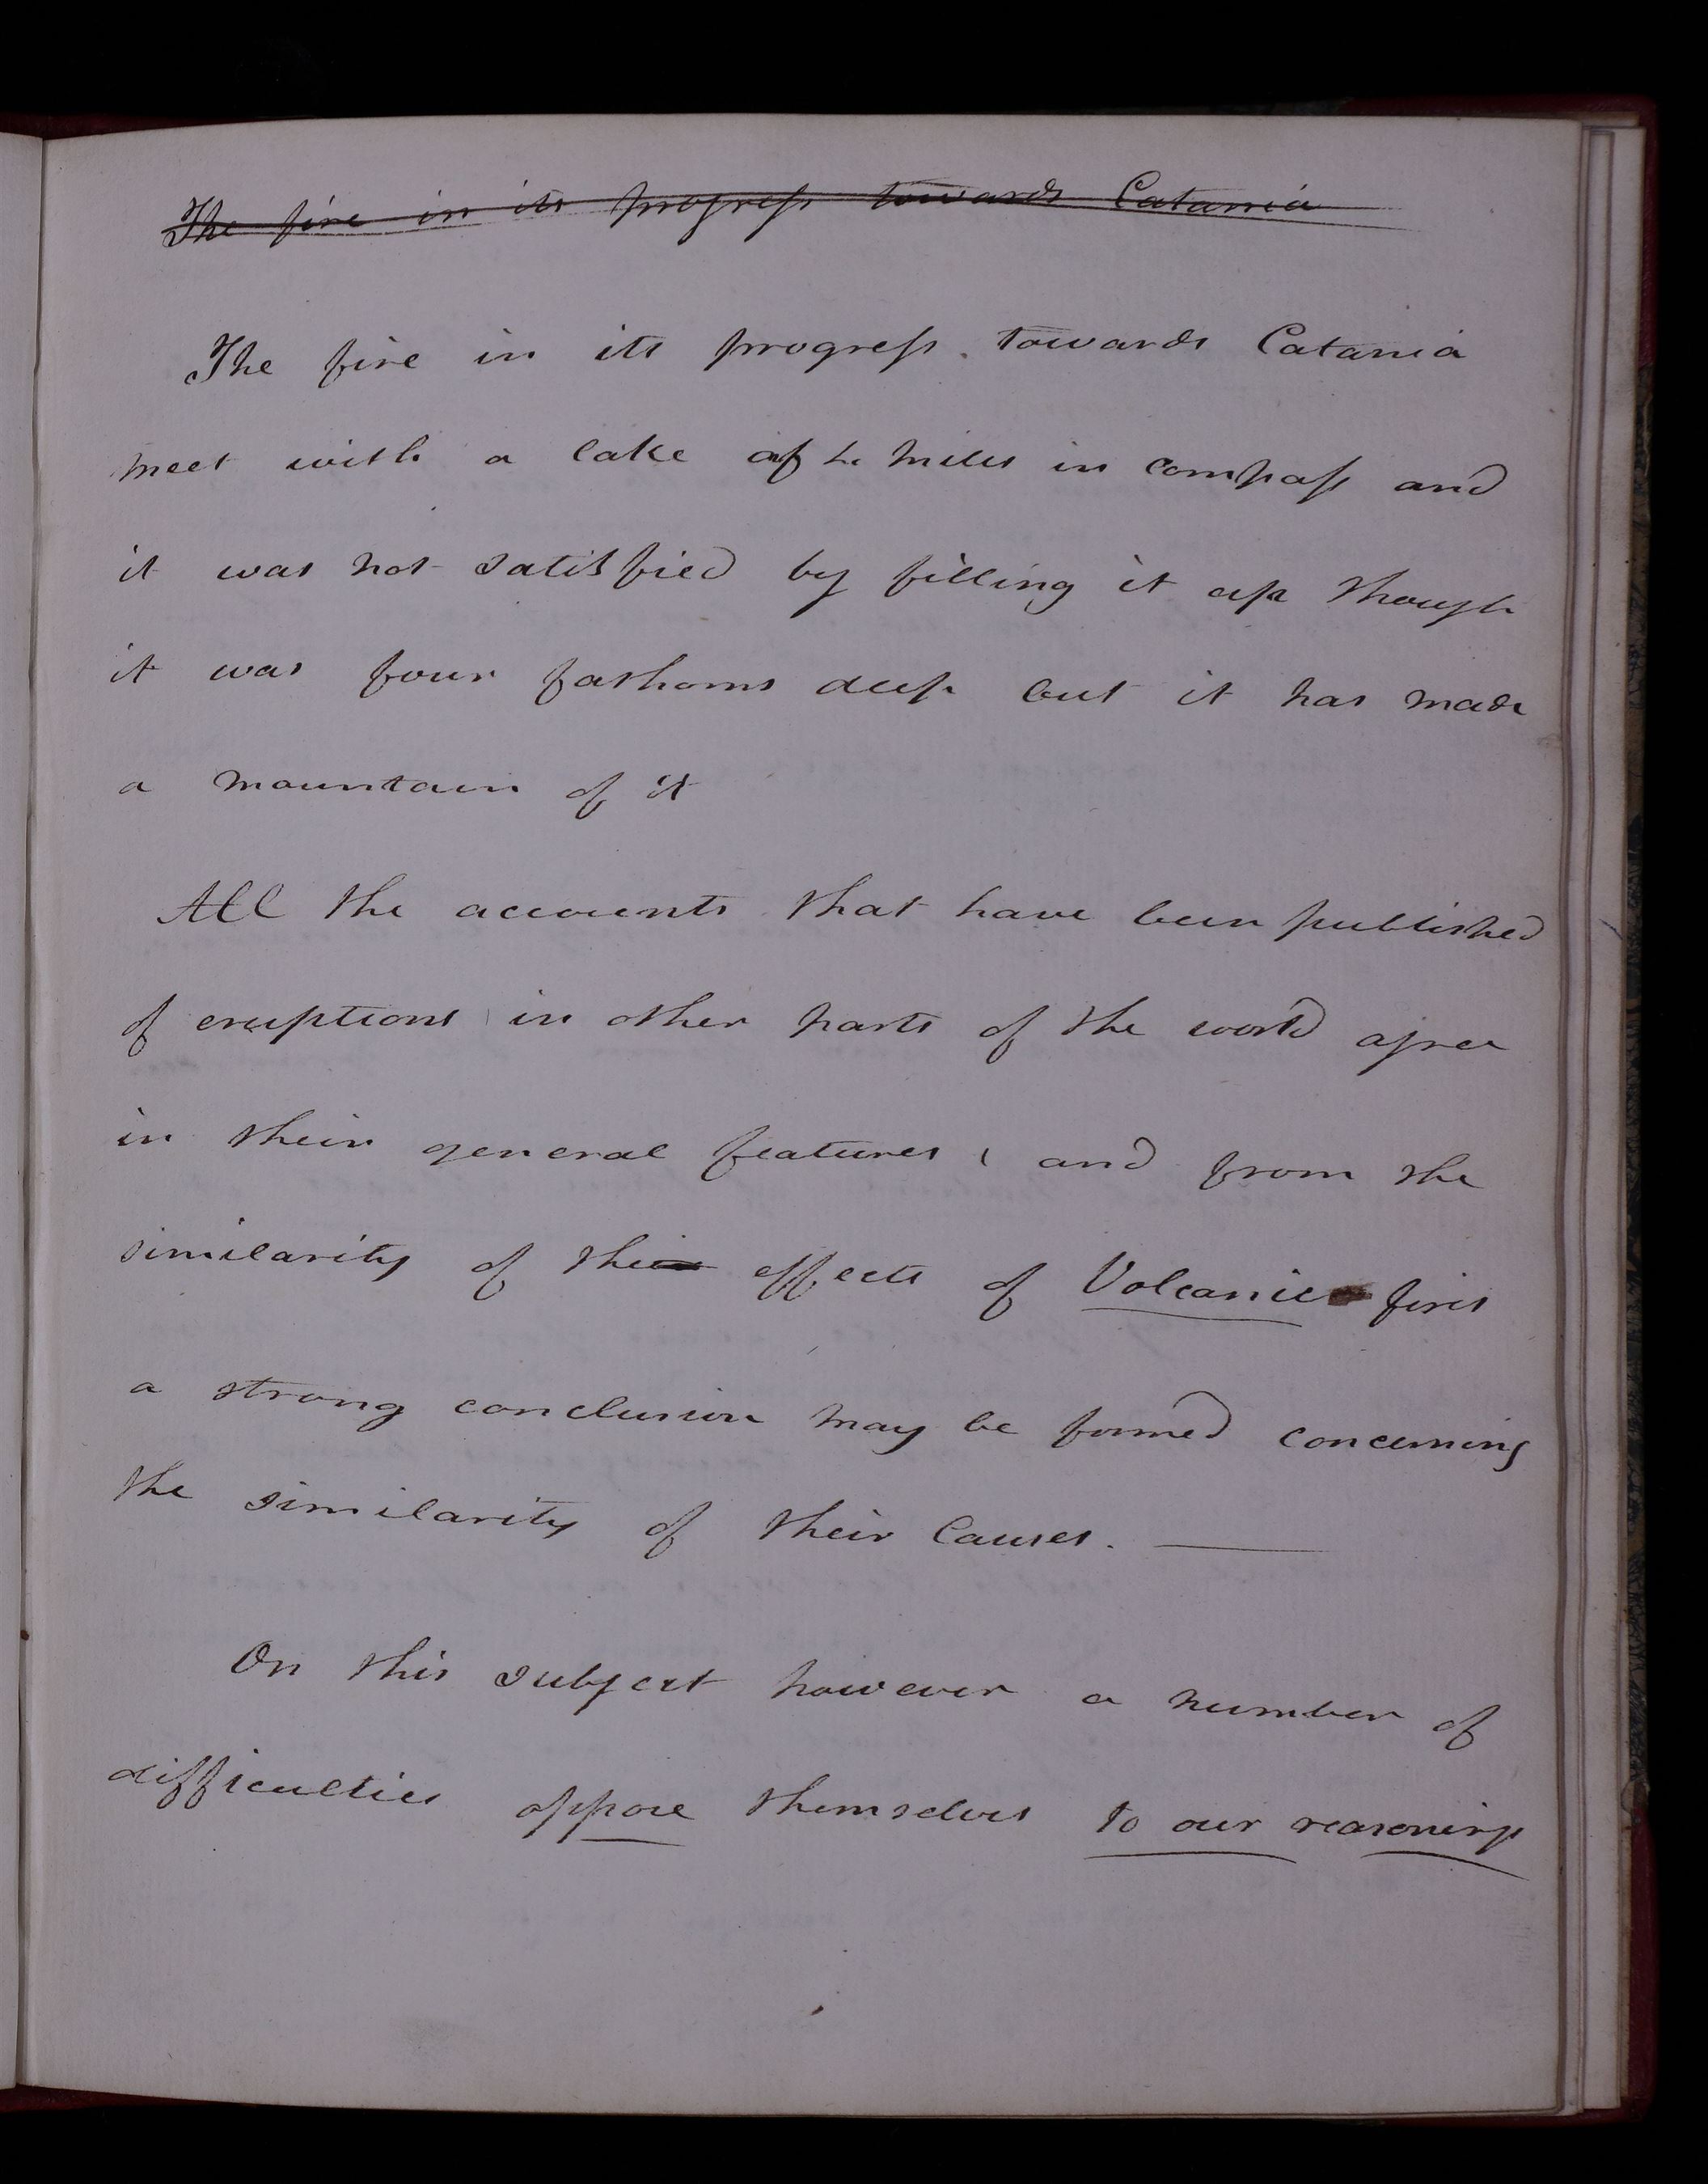 The fire in its progress towards Catania
The fire in its progress towards Catania
meet with a lake of 4 miles in compass and
it was not satisfied by filling it up though
it was four fathoms deep but it has made
a mountain of it
All the accounts that have been published
of eruptions in other parts of the world agree
in their general features, and from the
similarity of the effects of Volcanic fires
a strong conclusion may be formed concerning
the similarity of their Causes. —
On this subject however a number of
difficulties oppose themselves to our reasonings